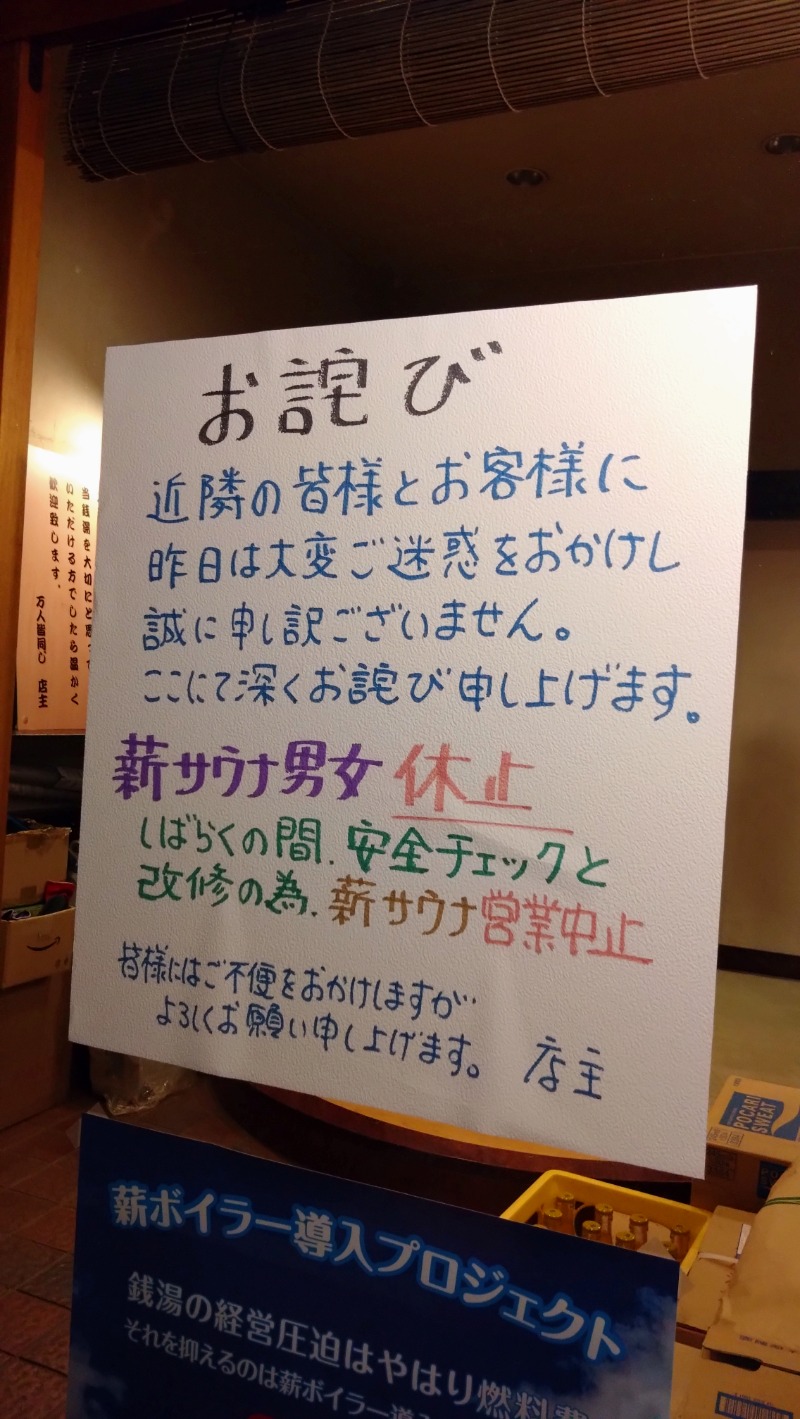 お詫び
近隣の皆様とお客様に
昨日は大変ご迷惑をおかけし
誠に申し訳ございません。
ここにて深くお詫び申し上げます。
薪サウナ男女 休止
しばらくの間、安全チェックと
改修の為、薪サウナ営業中止
皆様にはご不便をおかけしますが…
よろしくお願い申し上げます。 店主
当銭湯を大切にと思って
いただける方でしたら温かく
歓迎致します。
万人皆同じ 店主
POCARI
SWEAT
薪ボイラー導入プロジェクト
銭湯の経営圧迫はやはり燃料費
それを抑えるのは薪ボイラー導